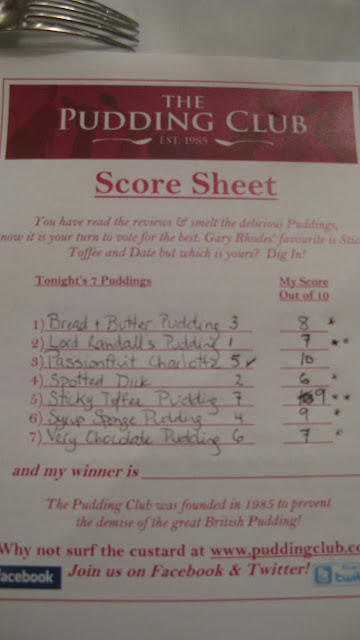 THE
PUDDING CLUB
EST. 1985
Score Sheet
You have read the reviews & smelt the delicious Puddings,
now it is your turn to vote for the best. Gary Rhodes' favourite is
Toffee and Date but which is yours? Dig In!
Tonight's 7 Puddings My Score
Out of 10
1) Bread + Butter Pudding 3 8 *
2) Lord Randall's Pudding 1 7 **
3) Passionfruit Charlotte 5 ✓ 10
4) Spotted Dick 2 6 *
5) Sticky Toffee Pudding 7 9 **
6) Syrup Sponge Pudding 4 9 *
7) Very Chocolate Pudding 6 7 *
and my winner is
The Pudding Club was founded in 1985 to prevent
the demise of the great British Pudding!
Why not surf the custard at www.puddingclub.co
facebook Join us on Facebook & Twitter!